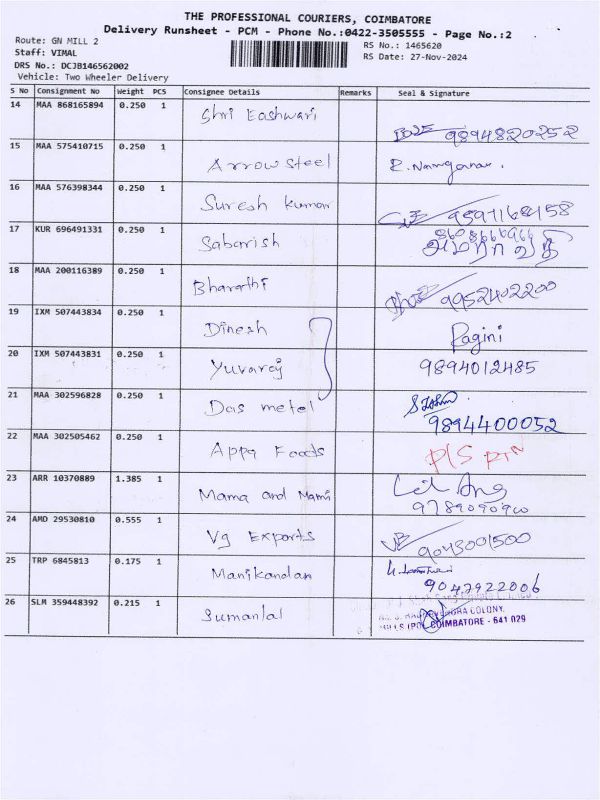 THE PROFESSIONAL COURIERS, COIMBATORE
Delivery Runsheet - PCM - Phone No.:0422-3505555 - Page No.:2
Route: GN MILL 2
RS No.: 1465620
Staff: VIMAL
RS Date: 27-Nov-2024
DRS No.: DCJB146562002
Vehicle: Two Wheeler Delivery
S No Consignment No Weight PCS Consignee Details Remarks Seal & Signature
14 MAA 868165894 0.250 1 Shri Eashwari
9894820252
15 MAA 575410715 0.250 1 Arrow Steel
16 MAA 576398344 0.250 1 Suresh Kumar
9597168158
17 KUR 696491331 0.250 1 Sabarish
அமராவதி
18 MAA 200116389 0.250 1 Bharathi
9952402200
19 IXM 507443834 0.250 1 Dinesh Ragini
20 IXM 507443831 0.250 1 Yuvaraj 9894012485
21 MAA 302596828 0.250 1 Das metel
9894400052
22 MAA 302505462 0.250 1 Appa Foods P/S RTN
23 ARR 10370889 1.385 1 Mama and Mami
9789090900
24 AMD 29530810 0.555 1 Vg Exports
9043001500
25 TRP 6845813 0.175 1 Manikandan
9042922006
26 SLM 359448392 0.215 1 Sumanlal
COLONY,
MILLS (PO), COIMBATORE - 641 029